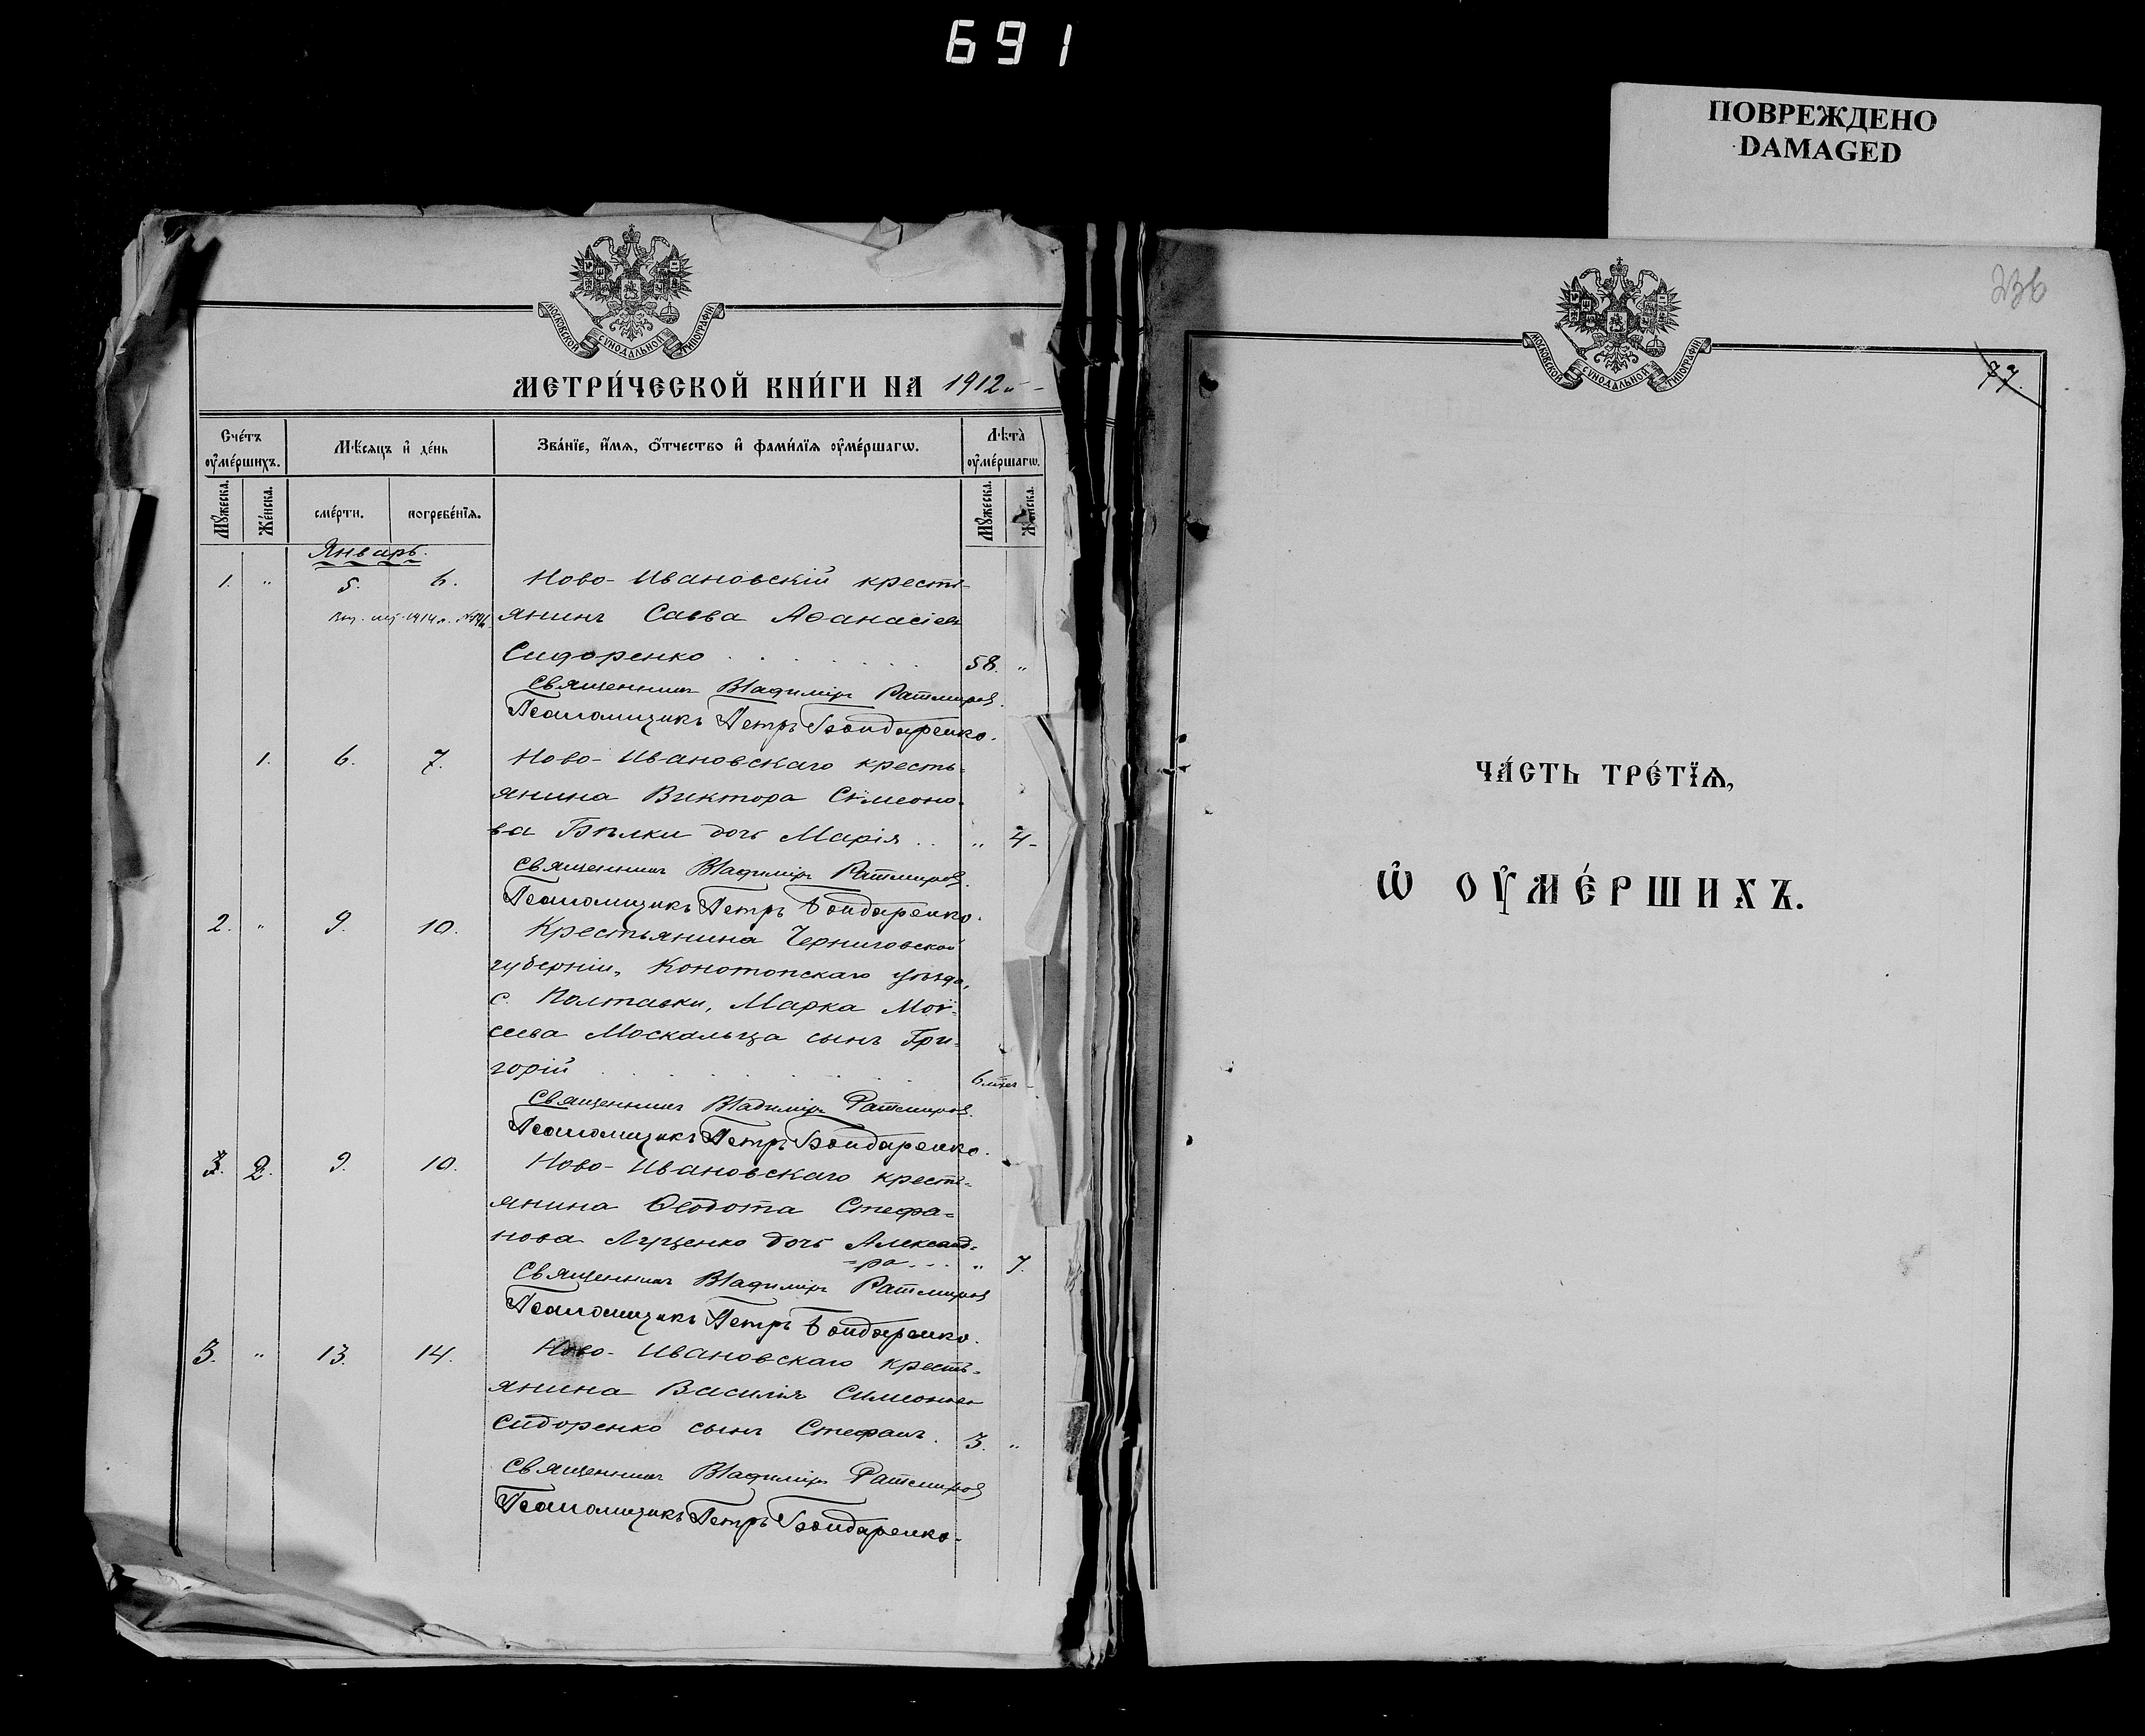 691
ПОВРЕЖДЕНО
DAMAGED
МОСКОВСКОЙ СѴНОДАЛЬНОЙ ТИПОГРАФІИ
МЕТРИ́ЧЕСКОЙ КНИ́ГИ НА 1912
Сче́тъ оу҆ме́ршихъ.
Мѣ́сяцъ и҆ де́нь
Зва́нїе, и҆́мѧ, ѻ҆́тчество и҆ фами́лїѧ оу҆ме́ршагѡ.
Лѣта̀ оу҆ме́ршагѡ.
Мꙋ́жеска.
Же́нска.
сме́рти.
погребе́нїѧ.
Мꙋ́жеска.
Же́нска.
Январь.
1. " 5. 6. Ново-Ивановскій кресть-
янинъ Савва Аѳанасіевъ
Сидоренко . . . . . . 58. "
Священникъ Владиміръ Ратмировъ.
Псаломщикъ Петръ Бондаренко.
1. 6. 7. Ново-Ивановскаго кресть-
янина Виктора Сѵмеоно-
ва Бѣлки дочь Марія . . " 4-
Священникъ Владиміръ Ратмировъ.
Псаломщикъ Петръ Бондаренко.
2. " 9. 10. Крестьянина Черниговской
губерніи, Конотопскаго уѣзда,
с. Полтавки, Марка Мої-
сеева Москальца сынъ Гри-
горій . . . . . . . 6 мѣс.
Священникъ Владиміръ Ратмировъ.
Псаломщикъ Петръ Бондаренко.
2. 9. 10. Ново-Ивановскаго кресть-
янина Ѳеодота Стефа-
нова Луценко дочь Александ-
-ра . . . " 7.
Священникъ Владиміръ Ратмировъ
Псаломщикъ Петръ Бондаренко.
3. " 13. 14. Ново-Ивановскаго кресть-
янина Василія Симеонова
Сидоренко сынъ Стефанъ. 3. "
Священникъ Владиміръ Ратмировъ
Псаломщикъ Петръ Бондаренко.
236
МОСКОВСКОЙ СѴНОДАЛЬНОЙ ТИПОГРАФІИ
77.
ЧА́СТЬ ТРЕ́ТЇѦ,
Ѡ҆ ОУ҆МЕ́РШИХЪ.